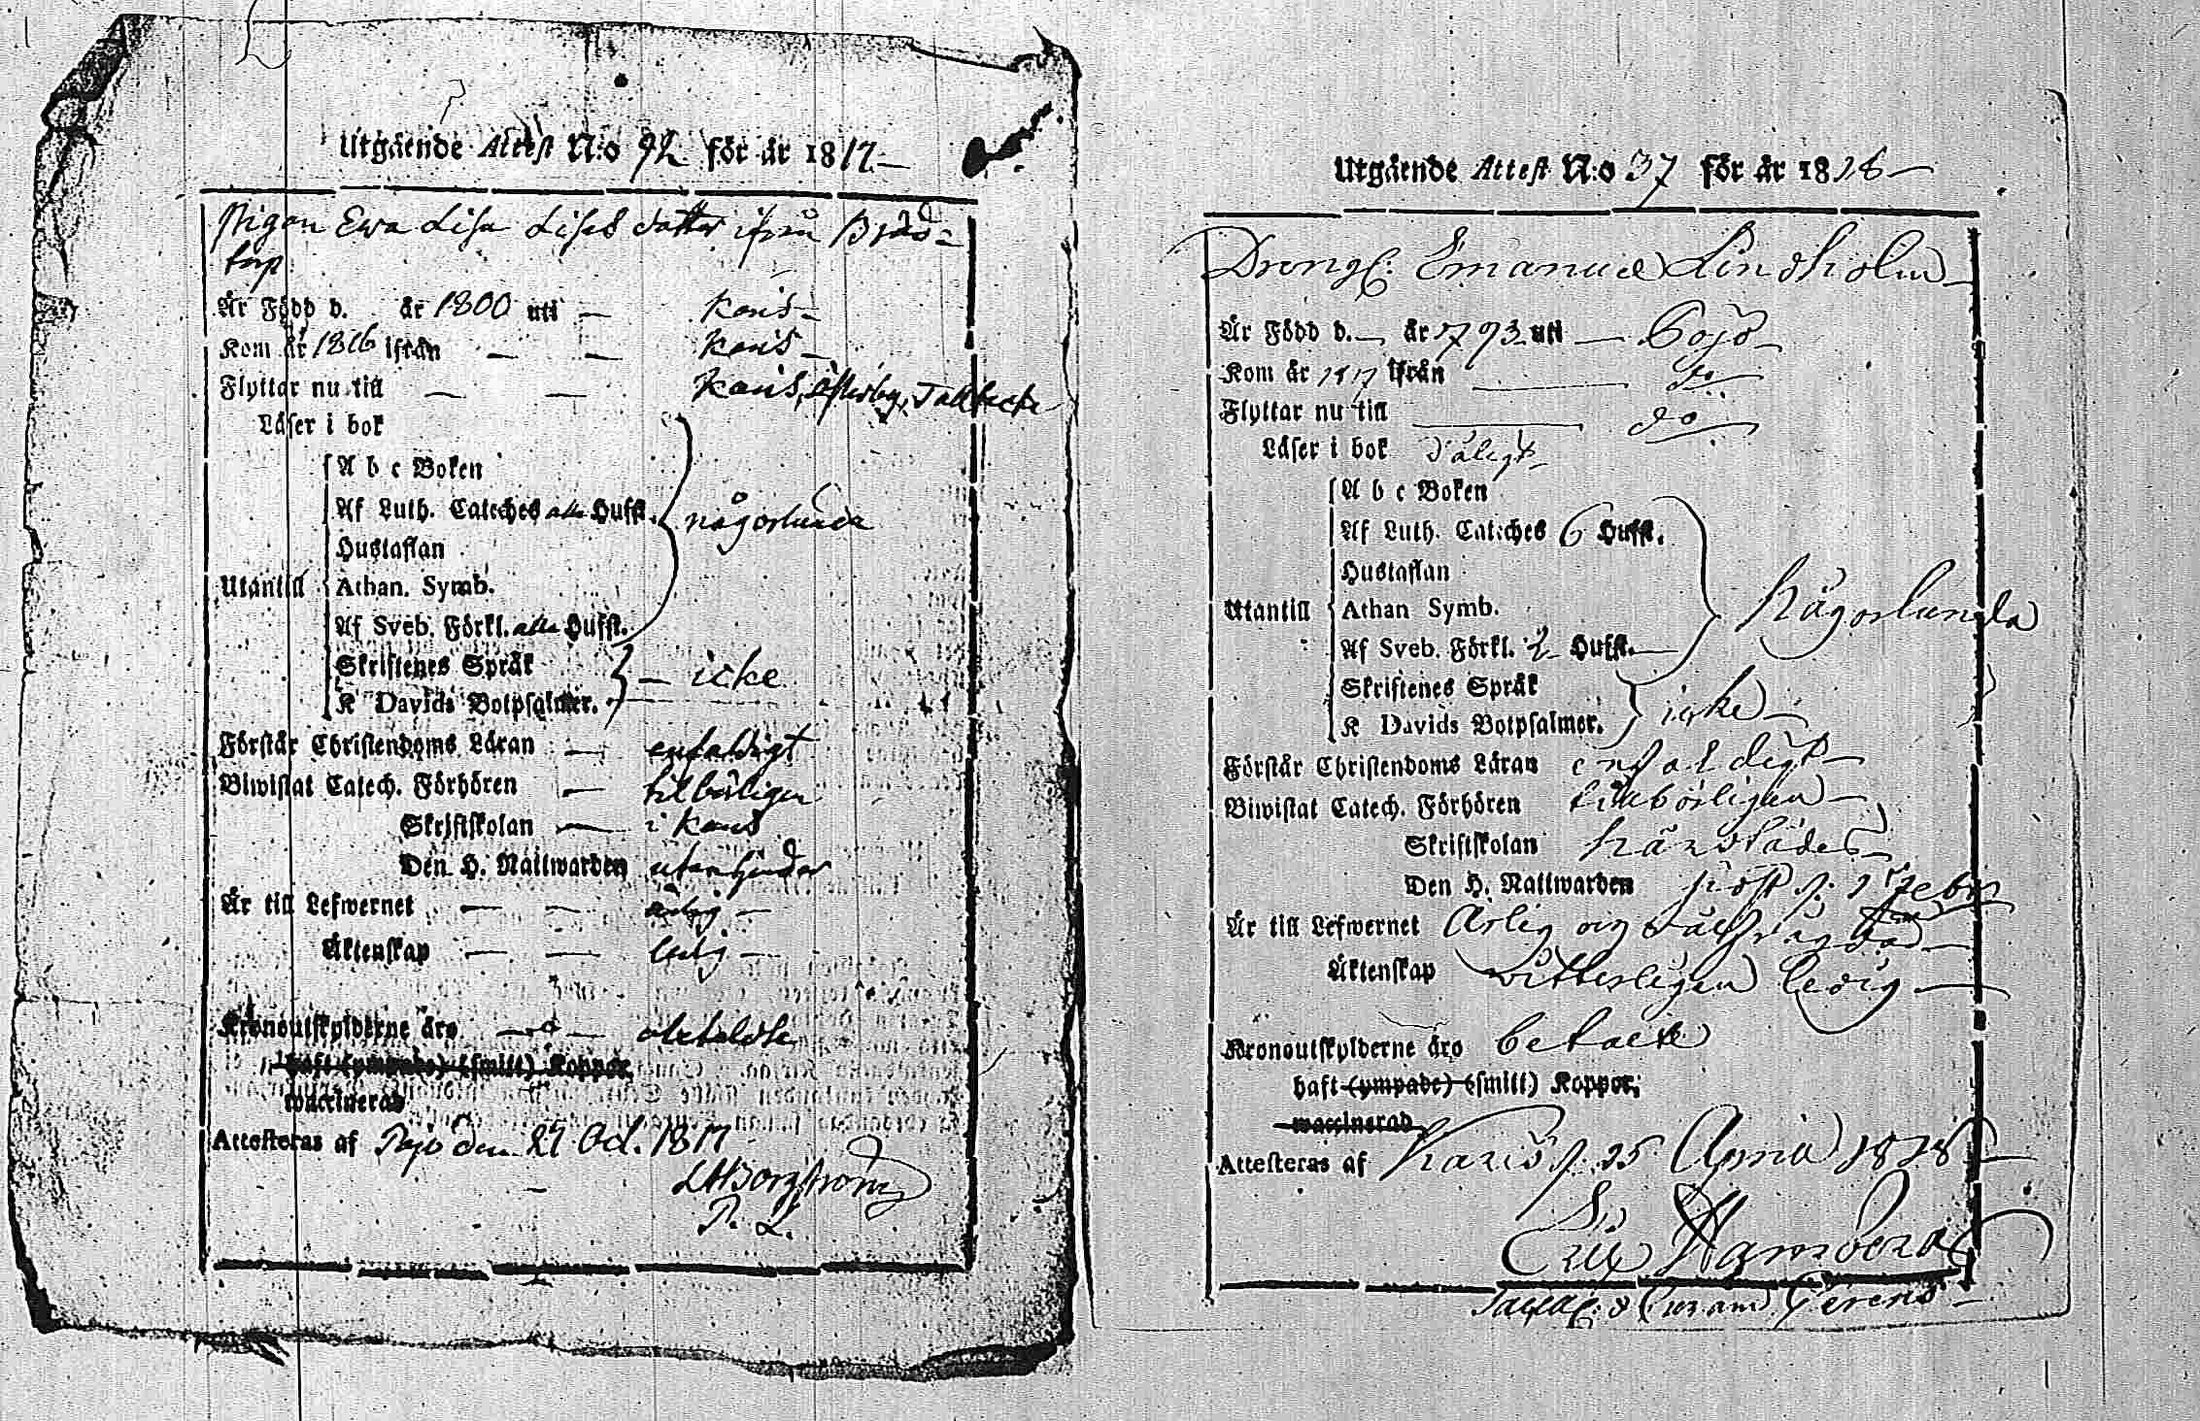 Utgående Attest N:o 92 för år 1817.
Pigan Ewa Lisa Lisas dotter ifrån Bråd-
torp
Är Född d. år 1800 uti — Karis
Kom år 1816 ifrån — — Karis
Flyttar nu till — — Karis, Österby, Tallbacka
Läser i bok
A b c Boken
Af Luth. Cateches alla Hufst.
någorlunda
Hustaflan
Utantill
Athan. Symb.
Af Sveb. Förkl. alla Hufst.
Skriftenes Språk
— icke
K Davids Botpsalmer.
Förstår Christendoms Läran — enfaldigt
Biwistat Catech. Förhören — tilbörligen
Skriftskolan — i Karis
Den H. Nattwarden utan hinder
Är till Lefwernet — — ärlig —
Äktenskap — — ledig —
Kronoutskylderne äro — obetalda
haft (ympade) (smitt) Koppor,
waccinerad
Attesteras af Pojo den 27 Oct. 1817
LHBorgström
P. L.
Utgående Attest N:o 37 för år 1818 —
Drengen Emanuel Lindholm
Är Född d. — år 1793 uti — Pojo
Kom år 1817 ifrån do
Flyttar nu till do
Läser i bok dåligt
A b c Boken
Af Luth. Cateches 6 Hufst.
Hustaflan
Utantill
Athan Symb.
Någorlunda
Af Sveb. Förkl. 2 Hufst.
Skriftenes Språk
icke
K Davids Botpsalmer.
Förstår Christendoms Läran enfaldigt
Biwistat Catech. Förhören tillbörligen
Skriftskolan härstädes
Den H. Nattwarden sidst d. 1 Febr
Är till Lefwernet Ärlig och
Äktenskap witterligen ledig
Kronoutskylderne äro betalte
haft (ympade) (smitt) Koppor,
waccinerad
Attesteras af Karis d. 25 April 1818
Eric